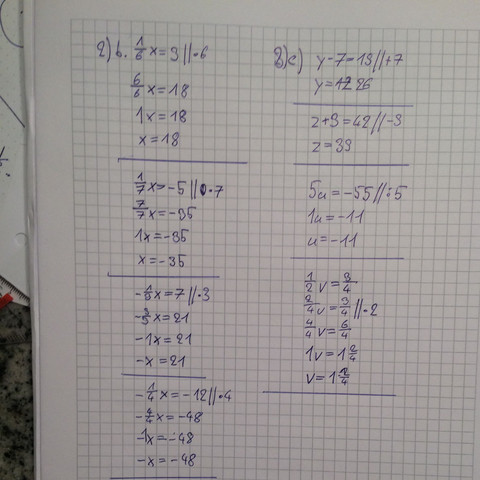 2) b. 1/6 x = 3 || · 6
6/6 x = 18
1x = 18
x = 18
1/7 x = -5 || · 7
7/7 x = -35
1x = -35
x = -35
- 1/3 x = 7 || · 3
- 3/3 x = 21
-1x = 21
-x = 21
- 1/4 x = -12 || · 4
- 4/4 x = -48
-1x = -48
-x = -48
y - 7 = 19 || + 7
y = 26
z + 3 = 42 || - 3
z = 39
5u = -55 || : 5
1u = -11
u = -11
1/2 v = 3/4
2/4 v = 3/4 || · 2
4/4 v = 6/4
1v = 1 2/4